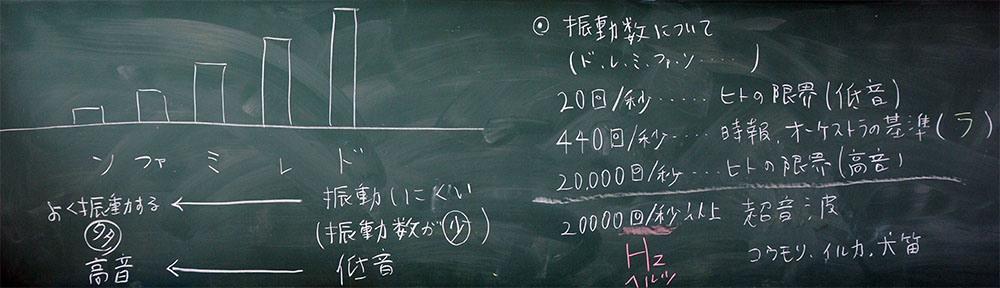 ソ ファ ミ レ ド
よく振動する ← 振動しにくい
多 (振動数が少)
高音 ← 低音
◎ 振動数について
(ド、レ、ミ、ファ、ソ‥‥‥)
20回/秒‥‥‥ヒトの限界(低音)
440回/秒‥‥時報、オーケストラの基準(ラ)
20,000回/秒‥‥ヒトの限界(高音)
20000回/秒以上 超音波
Hz コウモリ、イルカ、犬笛
ヘルツ